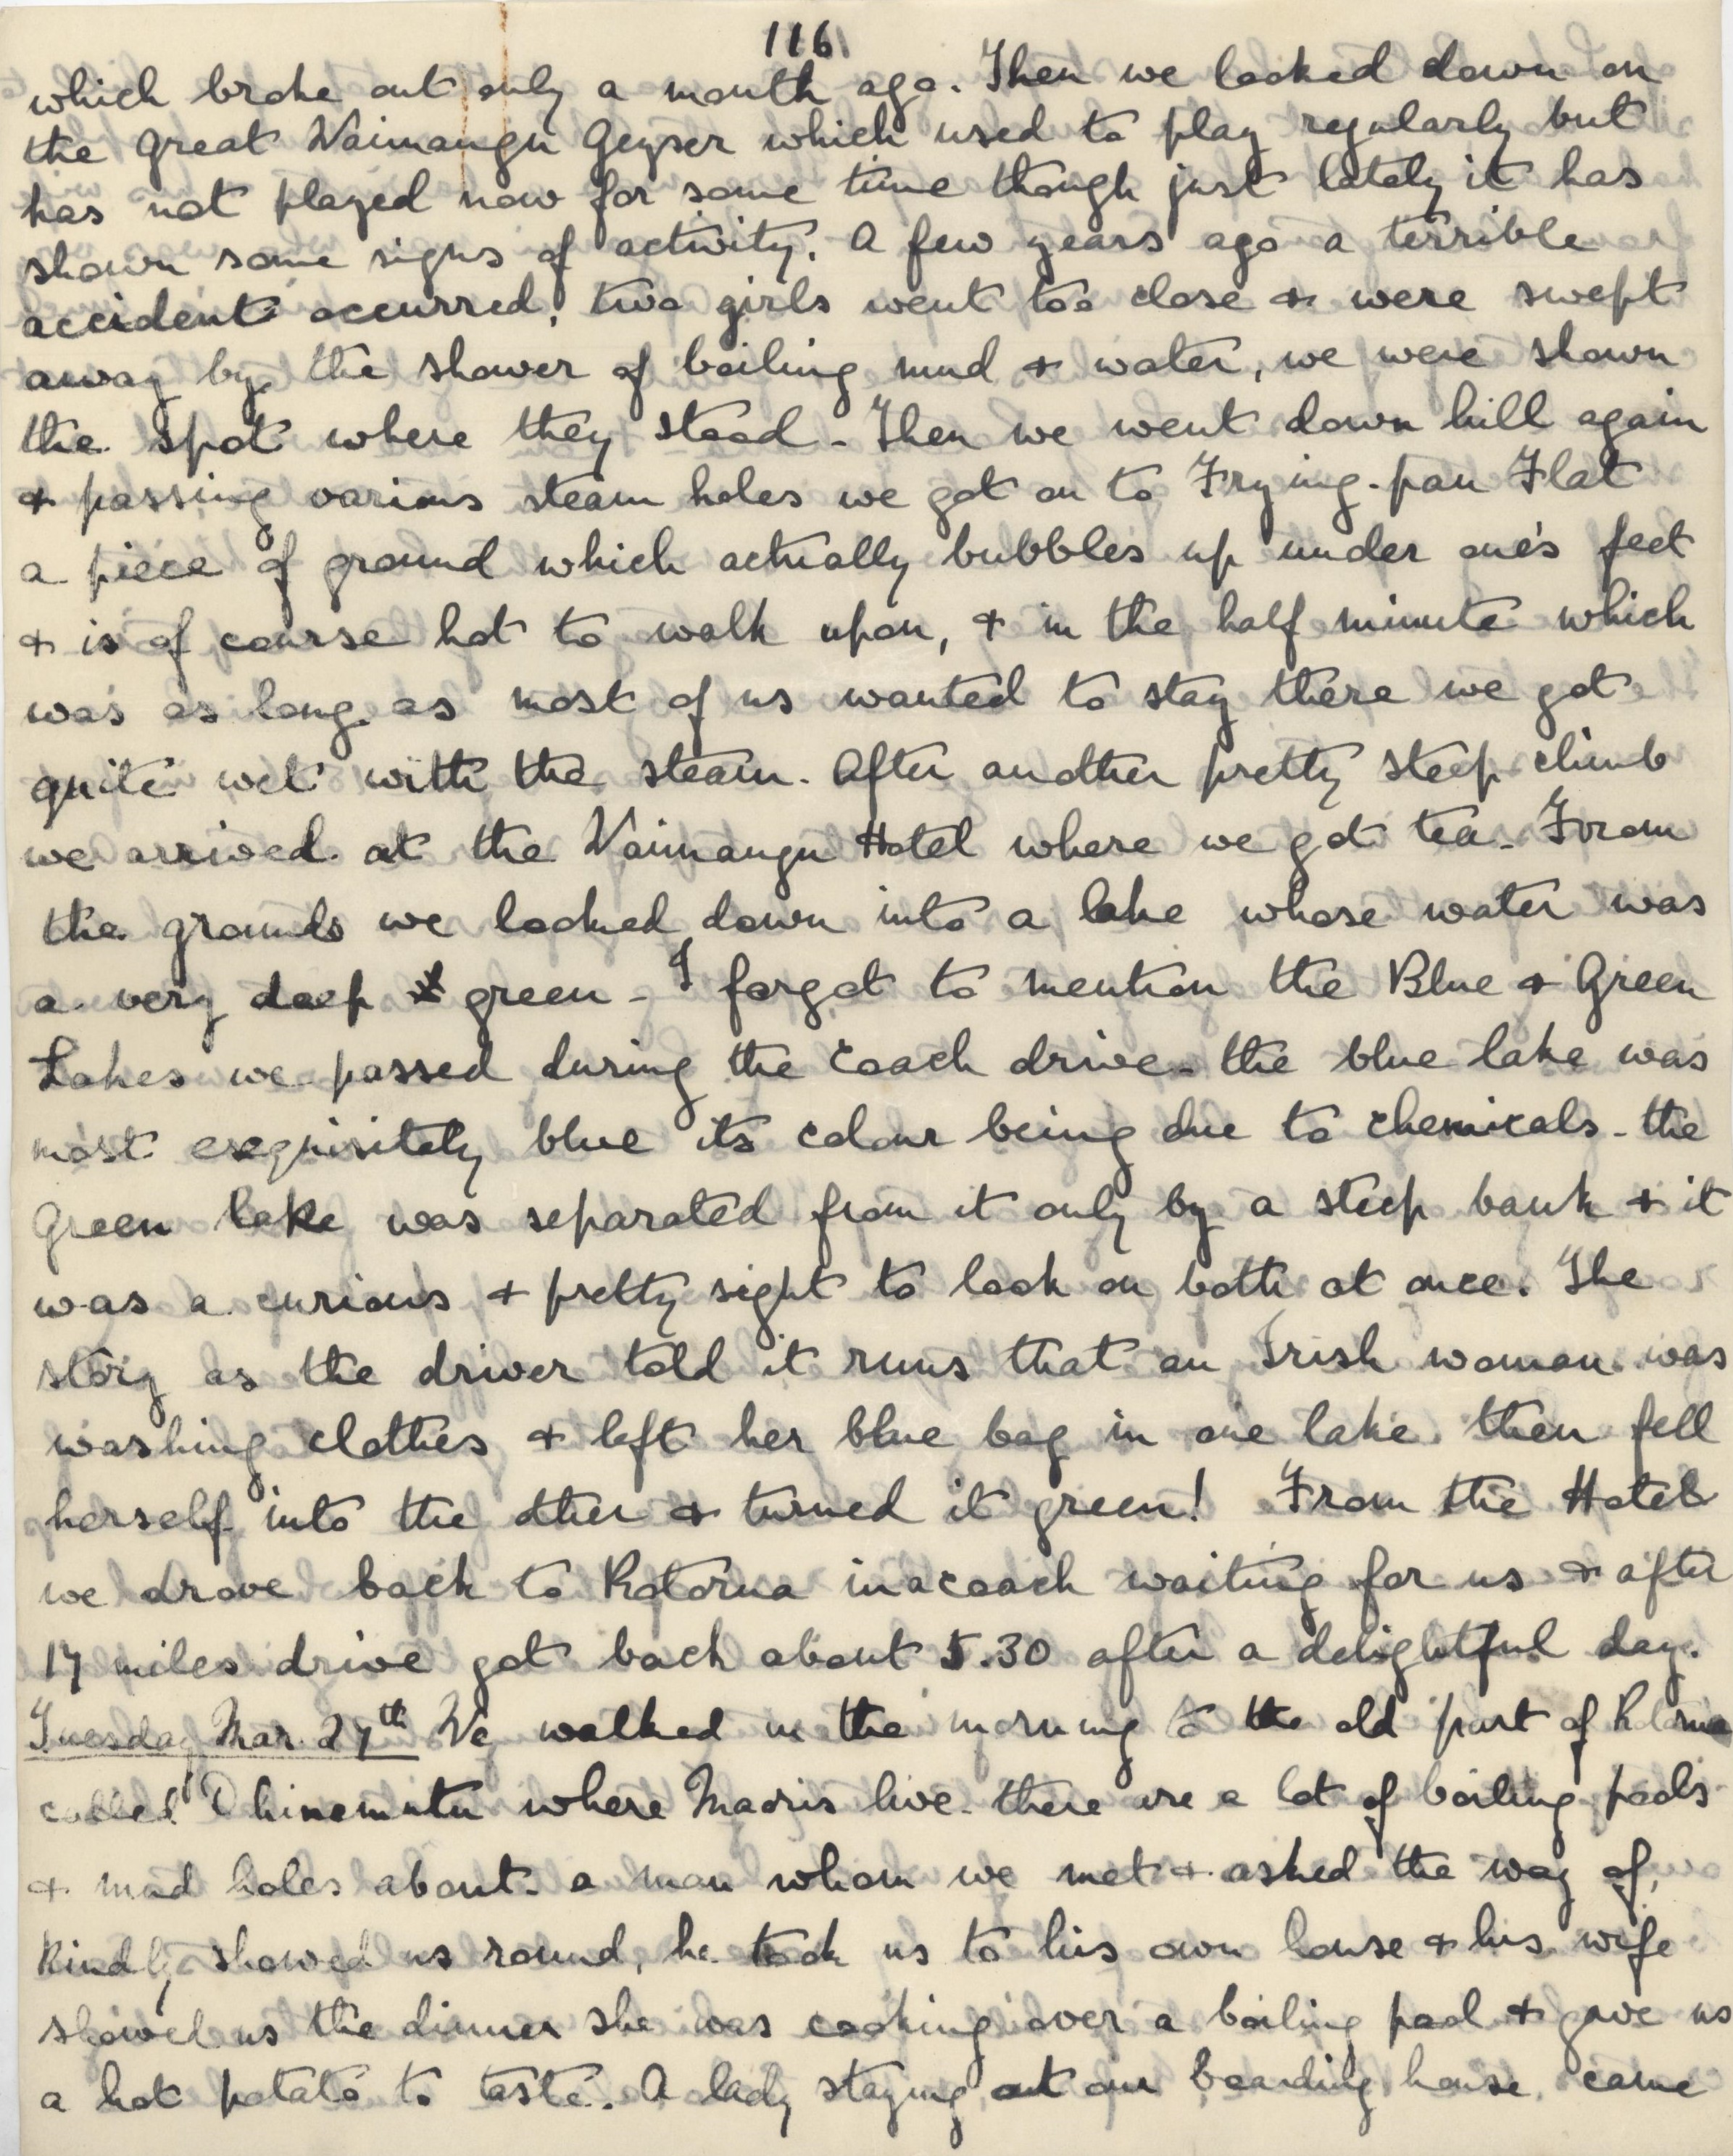 116
which broke out only a month ago. Then we looked down on
the Great Waimangu Geyser which used to play regularly but
has not played now for some time though just lately it has
shown some signs of activity. A few years ago a terrible
accident occurred, two girls went too close & were swept
away by the shower of boiling mud & water, we were shown
the spot where they stood - Then we went down hill again
& passing various steam holes we got on to Frying-pan Flat
a piece of ground which actually bubbles up under one's feet
& is of course hot to walk upon, & in the half minute which
was as long as most of us wanted to stay there we got
quite wet with the steam. After another pretty steep climb
we arrived at the Waimangu Hotel where we got tea. From
the grounds we looked down into a lake whose water was
a very deep green - I forgot to mention the Blue & Green
Lakes we passed during the coach drive - the blue lake was
most exquisitely blue its colour being due to chemicals - the
Green lake was separated from it only by a steep bank & it
was a curious & pretty sight to look on both at once. The
story as the driver told it runs that an Irish woman was
washing clothes & left her blue bag in one lake, then fell
herself into the other & turned it green! From the Hotel
we drove back to Rotorua in a coach waiting for us & after
17 miles drive got back about 5.30 after a delightful day.
Tuesday Mar. 27th We walked in the morning to the old part of Rotorua
called Ohinemutu where Maoris live - there are a lot of boiling pools
& mud holes about - a man whom we met & asked the way of,
kindly showed us round, he took us to his own house & his wife
showed us the dinner she was cooking over a boiling pool & gave us
a hot potato to taste. A lady staying at our boarding house, came